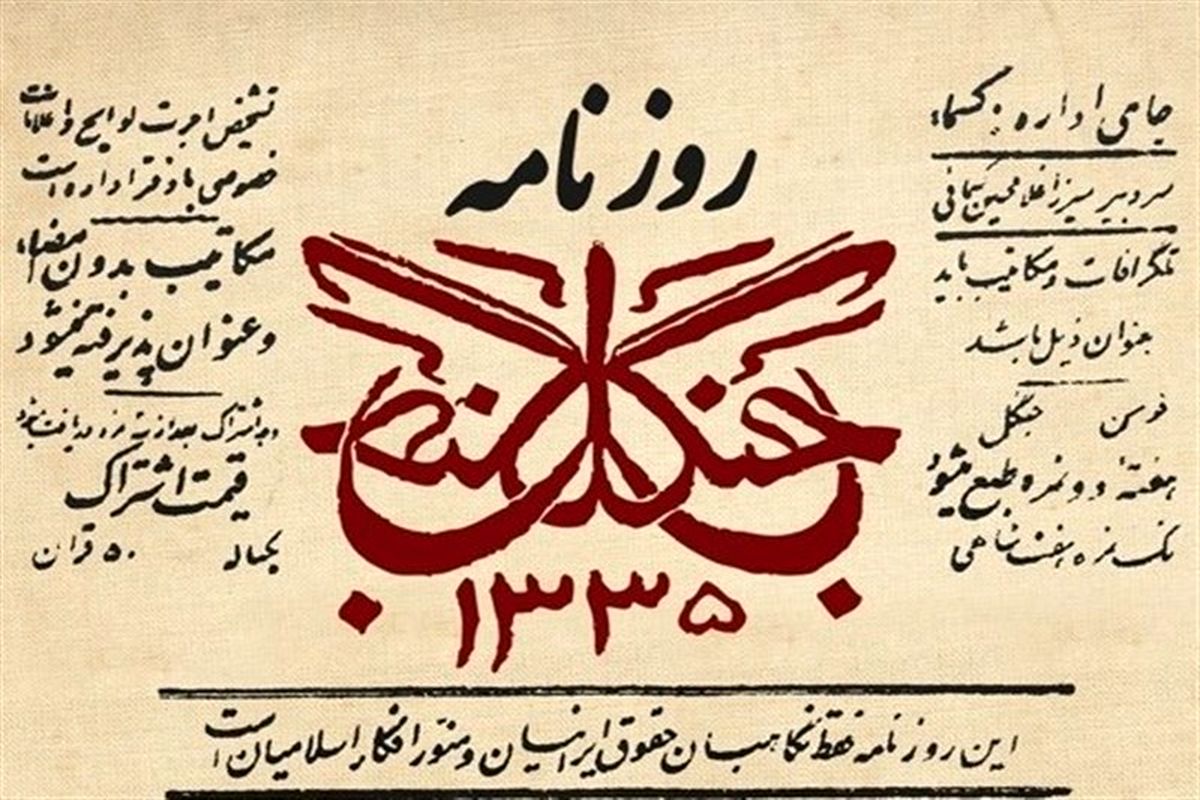 روزنامه
جنگل
۱۳۳۵
جای اداره: کسما
سردبیر میرزا غلامحسین کسمائی
تلگرافات و مکاتیب باید
بعنوان ذیل باشد
فومن جنگل
هفتهٔ دو نمره طبع میشود
تک نمره هفت شاهی
تشخیص اجرت لوایح و اعلانات
خصوصی با دفتر اداره است
مکاتیب بدون امضاء
و عنوان پذیرفته نمیشود
وجه اشتراک بعد از سه نمره دریافت میشود
قیمت اشتراک
یکساله ۵۰ قران
این روزنامه فقط نگاهبان حقوق ایرانیان و منور افکار اسلامیان است